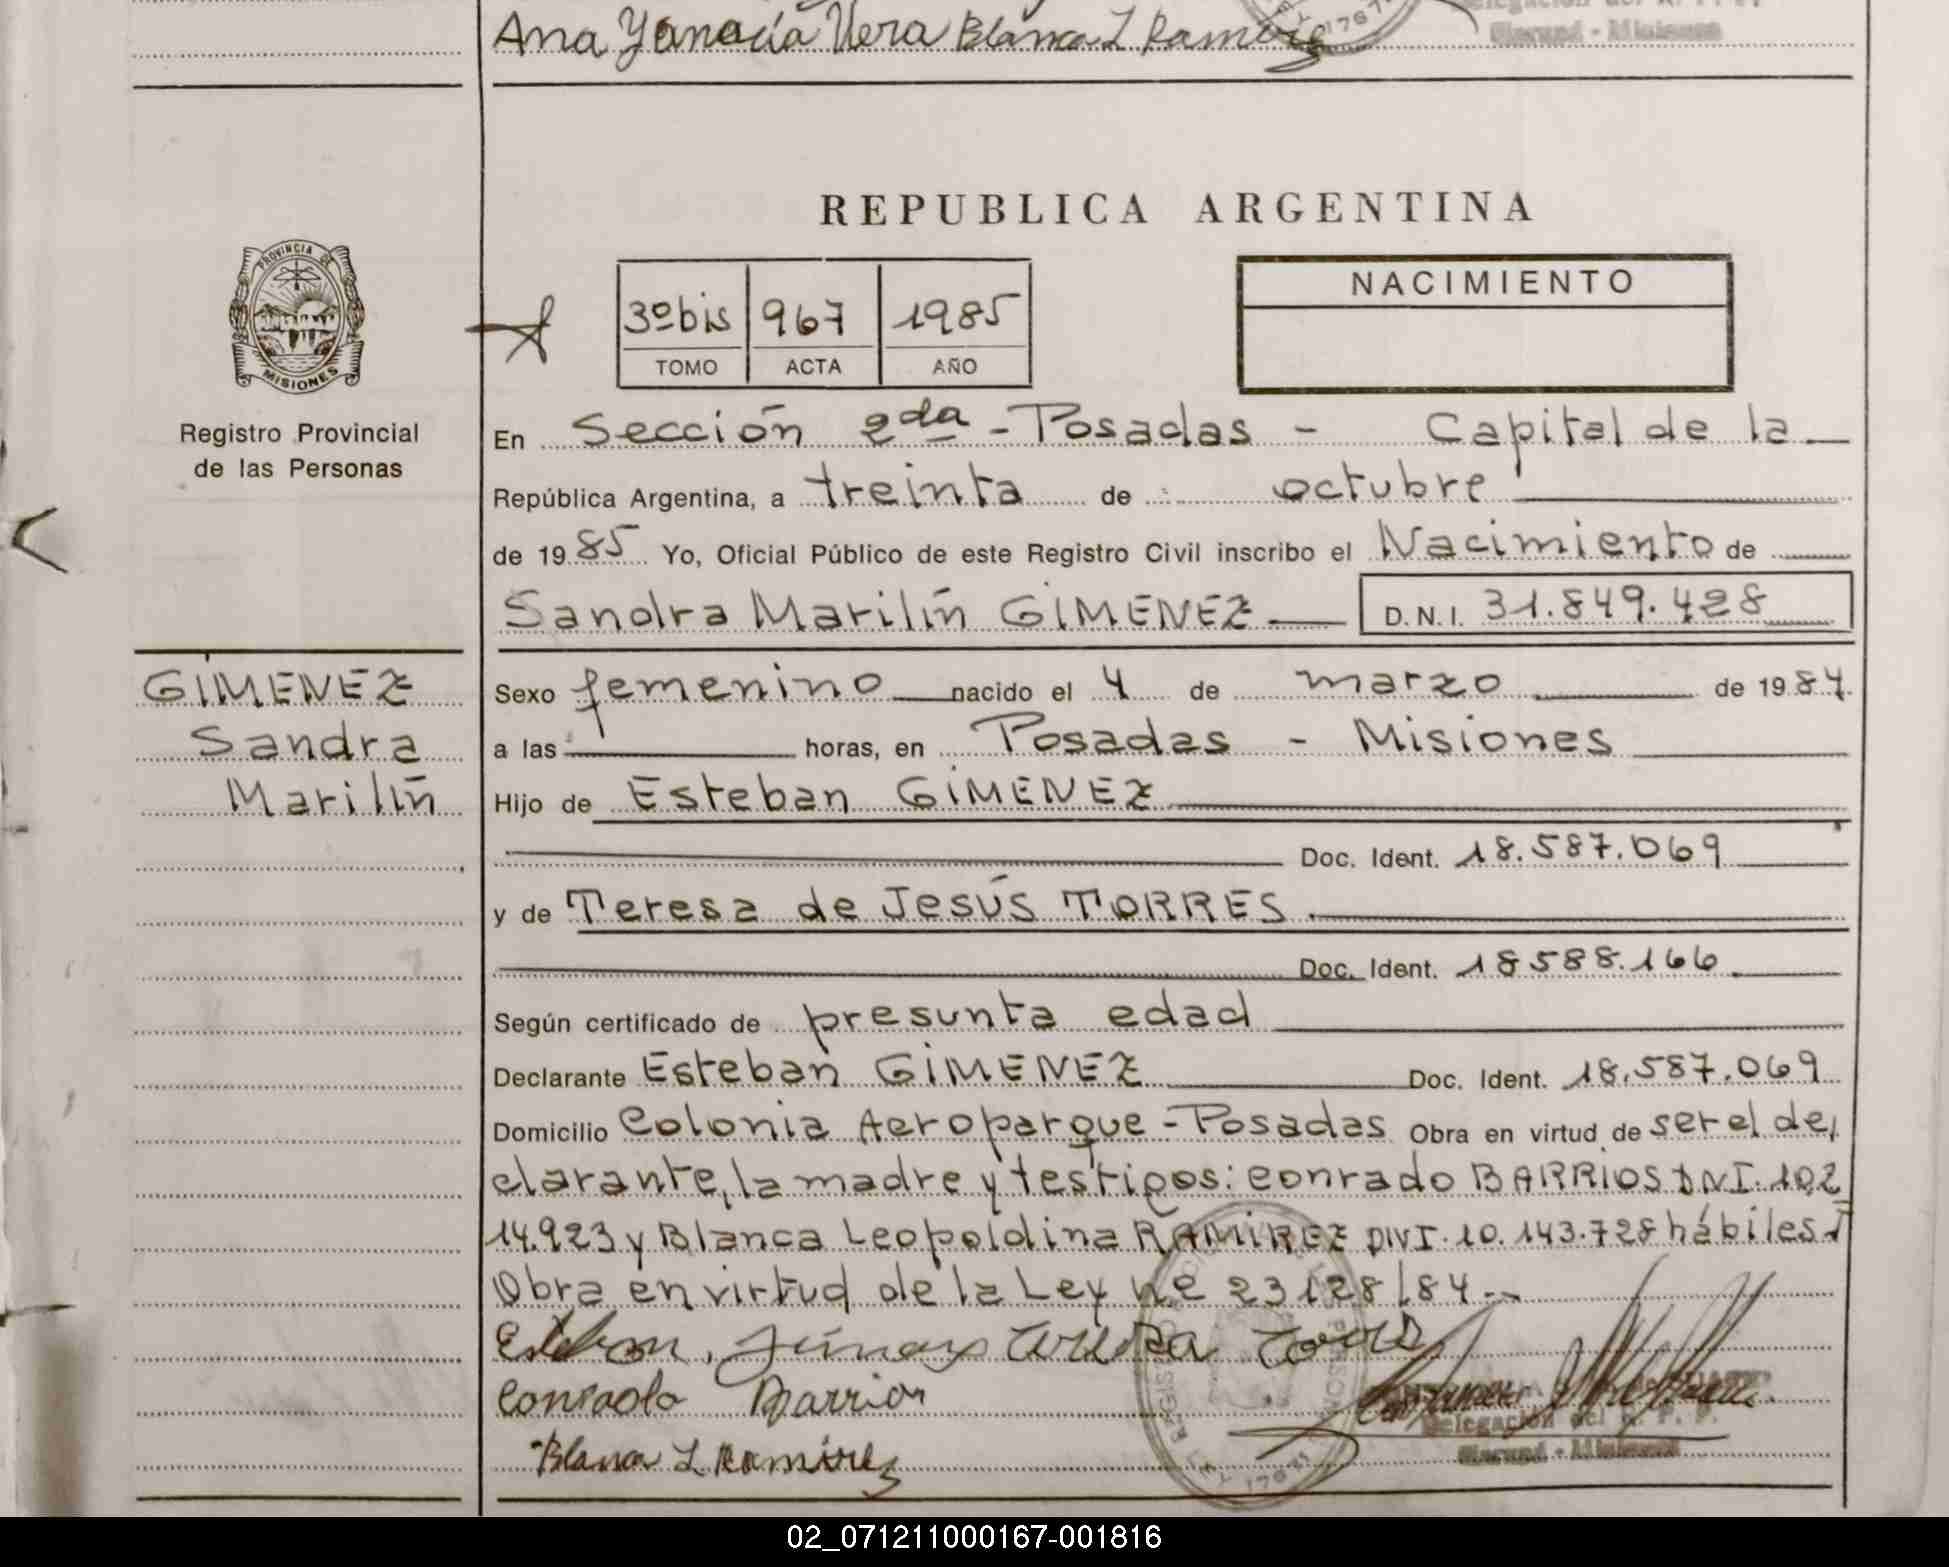 Ana Yanacia Vera Blanca L Ramirez
REPUBLICA ARGENTINA
PROVINCIA DE
MISIONES
NACIMIENTO
3º bis 967 1985
TOMO ACTA AÑO
Registro Provincial
de las Personas
En Sección 2da - Posadas - Capital de la
República Argentina, a treinta de octubre
de 1985 Yo, Oficial Público de este Registro Civil inscribo el Nacimiento de
Sandra Marilín GIMENEZ D.N.I. 31.849.428
GIMENEZ
Sandra
Marilín
Sexo femenino nacido el 4 de marzo de 1984.
a las horas, en Posadas - Misiones
Hijo de Esteban GIMENEZ
Doc. Ident. 18.587.069
y de Teresa de Jesús TORRES
Doc. Ident. 18588.166
Según certificado de presunta edad
Declarante Esteban GIMENEZ Doc. Ident. 18.587.069
Domicilio Colonia Aeroparque - Posadas Obra en virtud de ser el de
clarante, la madre y testigos: Conrado BARRIOS DNI. 10.2
14.923 y Blanca Leopoldina RAMIREZ DNI. 10.143.728 hábiles.
Obra en virtud de la Ley Nº 23128/84.-
Esteban Jimenez Teresa Torres
Conrado Barrios
Delegación del R. P. P.
Blanca L Ramirez
02_071211000167-001816